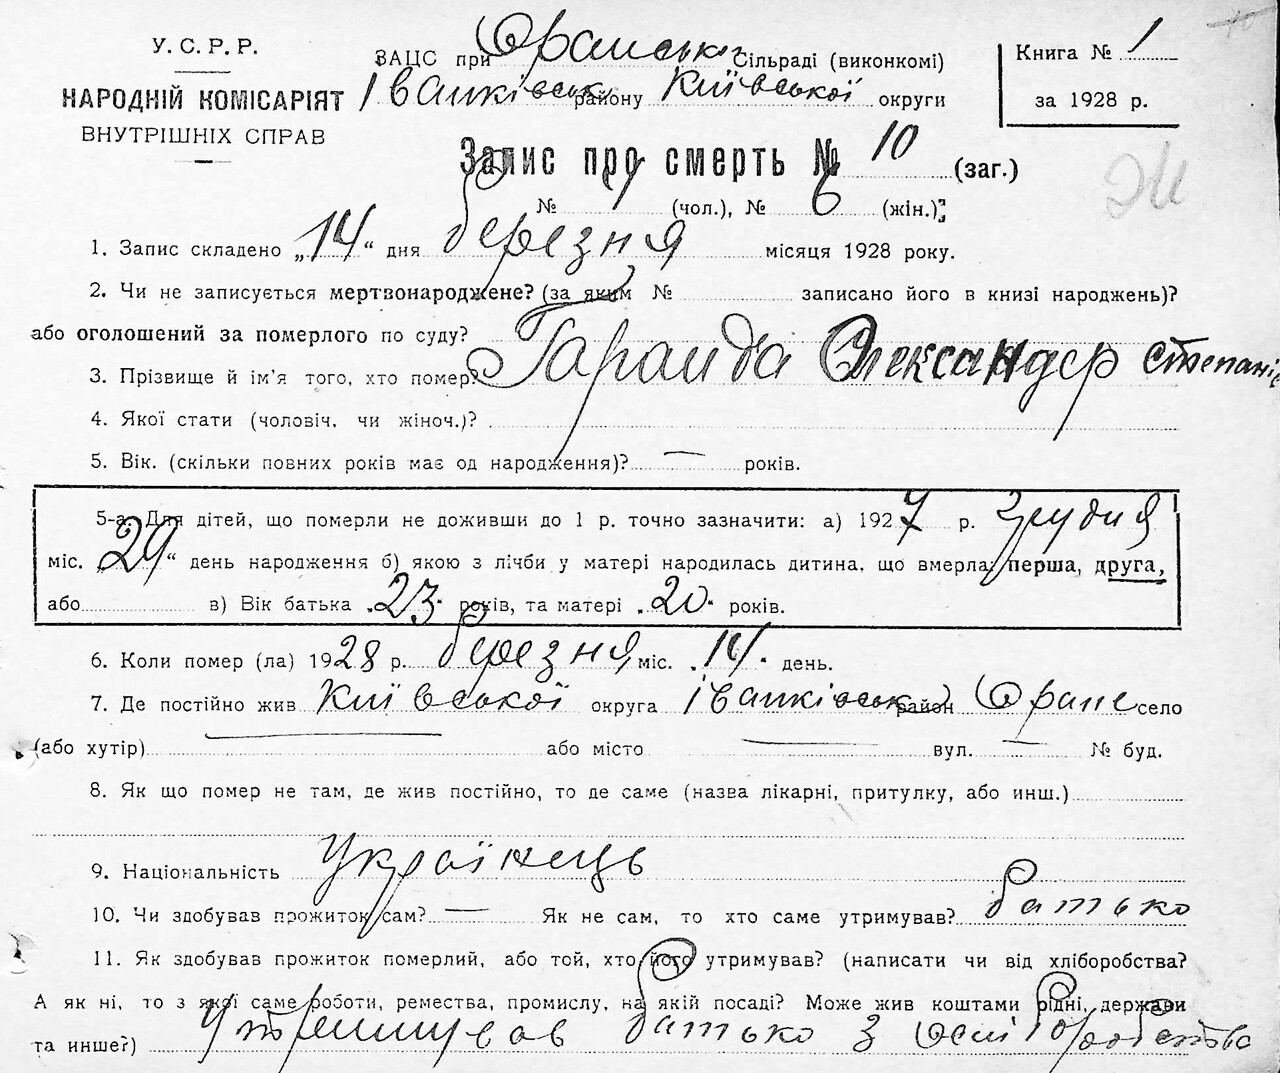 У. С. Р. Р.
НАРОДНІЙ КОМІСАРІЯТ
ВНУТРІШНІХ СПРАВ
ЗАЦС при Оранській Сільраді (виконкомі)
Іванківськ району Київської округи
Книга № 1
за 1928 р.
Запис про смерть № 10 (заг.)
№ 4 (чол.), № 6 (жін.);
1. Запис складено „14“ дня березня місяця 1928 року.
2. Чи не записується мертвонароджене? (за яким № записано його в книзі народжень)?
або оголошений за померлого по суду?
3. Прізвище й ім'я того, хто помер? Гаранда Олександер Степанів
4. Якої стати (чоловіч. чи жіноч.)?
5. Вік. (скільки повних років має од народження)? — років.
5-а. Для дітей, що померли не доживши до 1 р. точно зазначити: а) 1927 р. Грудня
міс. „29“ день народження б) якою з лічби у матері народилась дитина, що вмерла: перша, друга,
або в) Вік батька 23 років, та матері 20 років.
6. Коли помер (ла) 1928 р. березня міс. 14 день.
7. Де постійно жив Київської округа Іванківськ район Оране село
(або хутір) — або місто — вул. — № буд.
8. Як що помер не там, де жив постійно, то де саме (назва лікарні, притулку, або инш.)
9. Національність Українець
10. Чи здобував прожиток сам? — Як не сам, то хто саме утримував? батько
11. Як здобував прожиток померлий, або той, хто його утримував? (написати чи від хліборобства?
А як ні, то з якої саме роботи, ремества, промислу, на якій посаді? Може жив коштами рідні, держави
та инше?) Утримував батько з